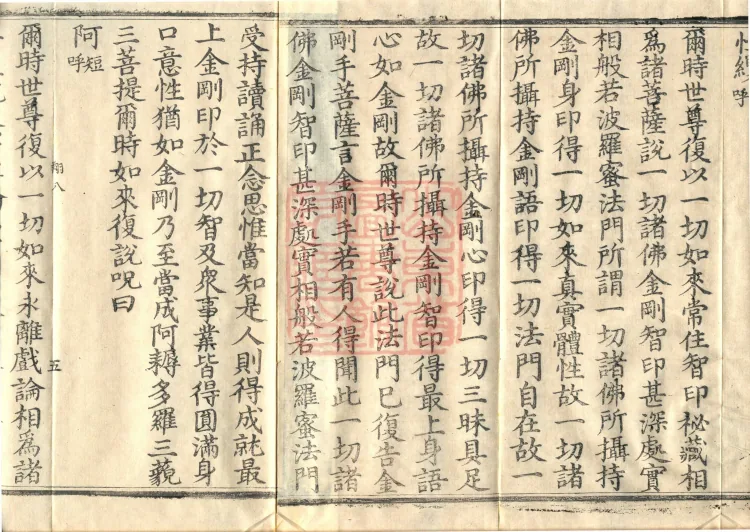 呼
爾時世尊復以一切如來常住智印祕藏相
爲諸菩薩說一切諸佛金剛智印甚深處實
相般若波羅蜜法門所謂一切諸佛所攝持
金剛身印得一切如來真實體性故一切諸
佛所攝持金剛語印得一切法門自在故一
切諸佛所攝持金剛心印得一切三昧具足
故一切諸佛所攝持金剛智印得最上身語
心如金剛故爾時世尊說此法門已復告金
剛手菩薩言金剛手若有人得聞此一切諸
佛金剛智印甚深處實相般若波羅蜜法門
受持讀誦正念思惟當知是人則得成就最
上金剛印於一切智及衆事業皆得圓滿身
口意性猶如金剛乃至當成阿耨多羅三藐
三菩提爾時如來復說呪曰
阿短呼
翔八 五
爾時世尊復以一切如來永離戲論相爲諸